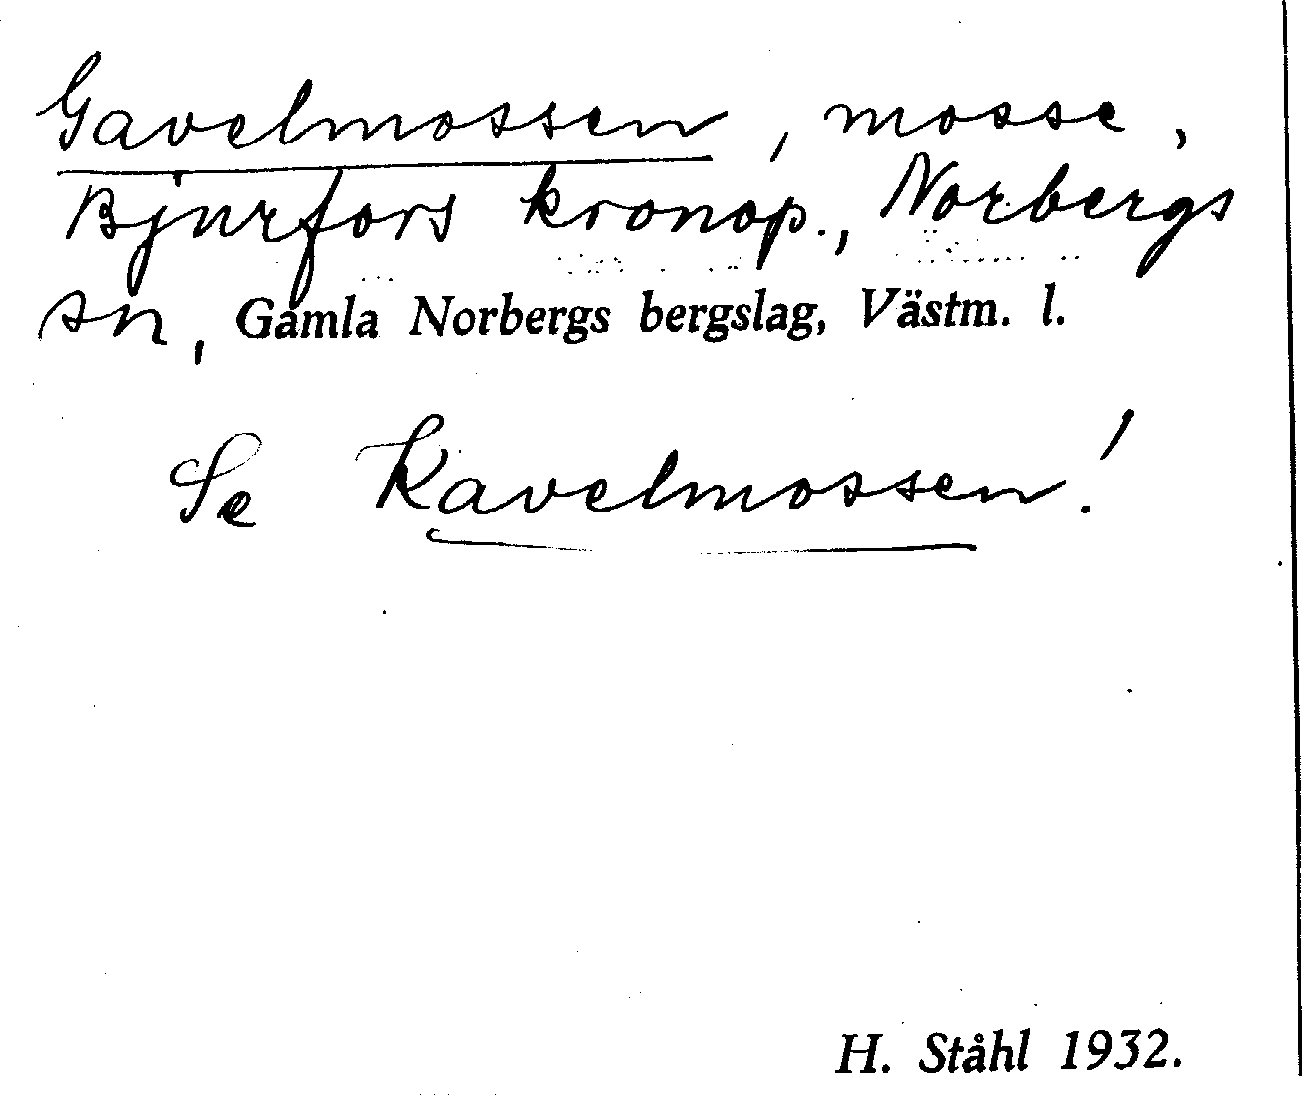 Gavelmossen, mosse,
Bjurfors kronop., Norbergs
sn, Gamla Norbergs bergslag, Västm. l.
Se Kavelmossen!
H. Ståhl 1932.